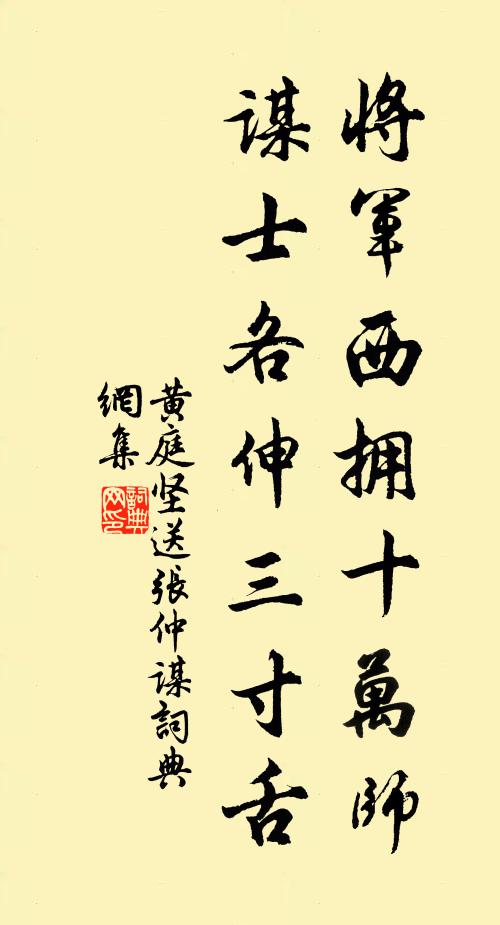 將軍西拥十萬師
谋士各伸三寸舌
黄庭坚送張仲谋詞典
網集
詞典
网印